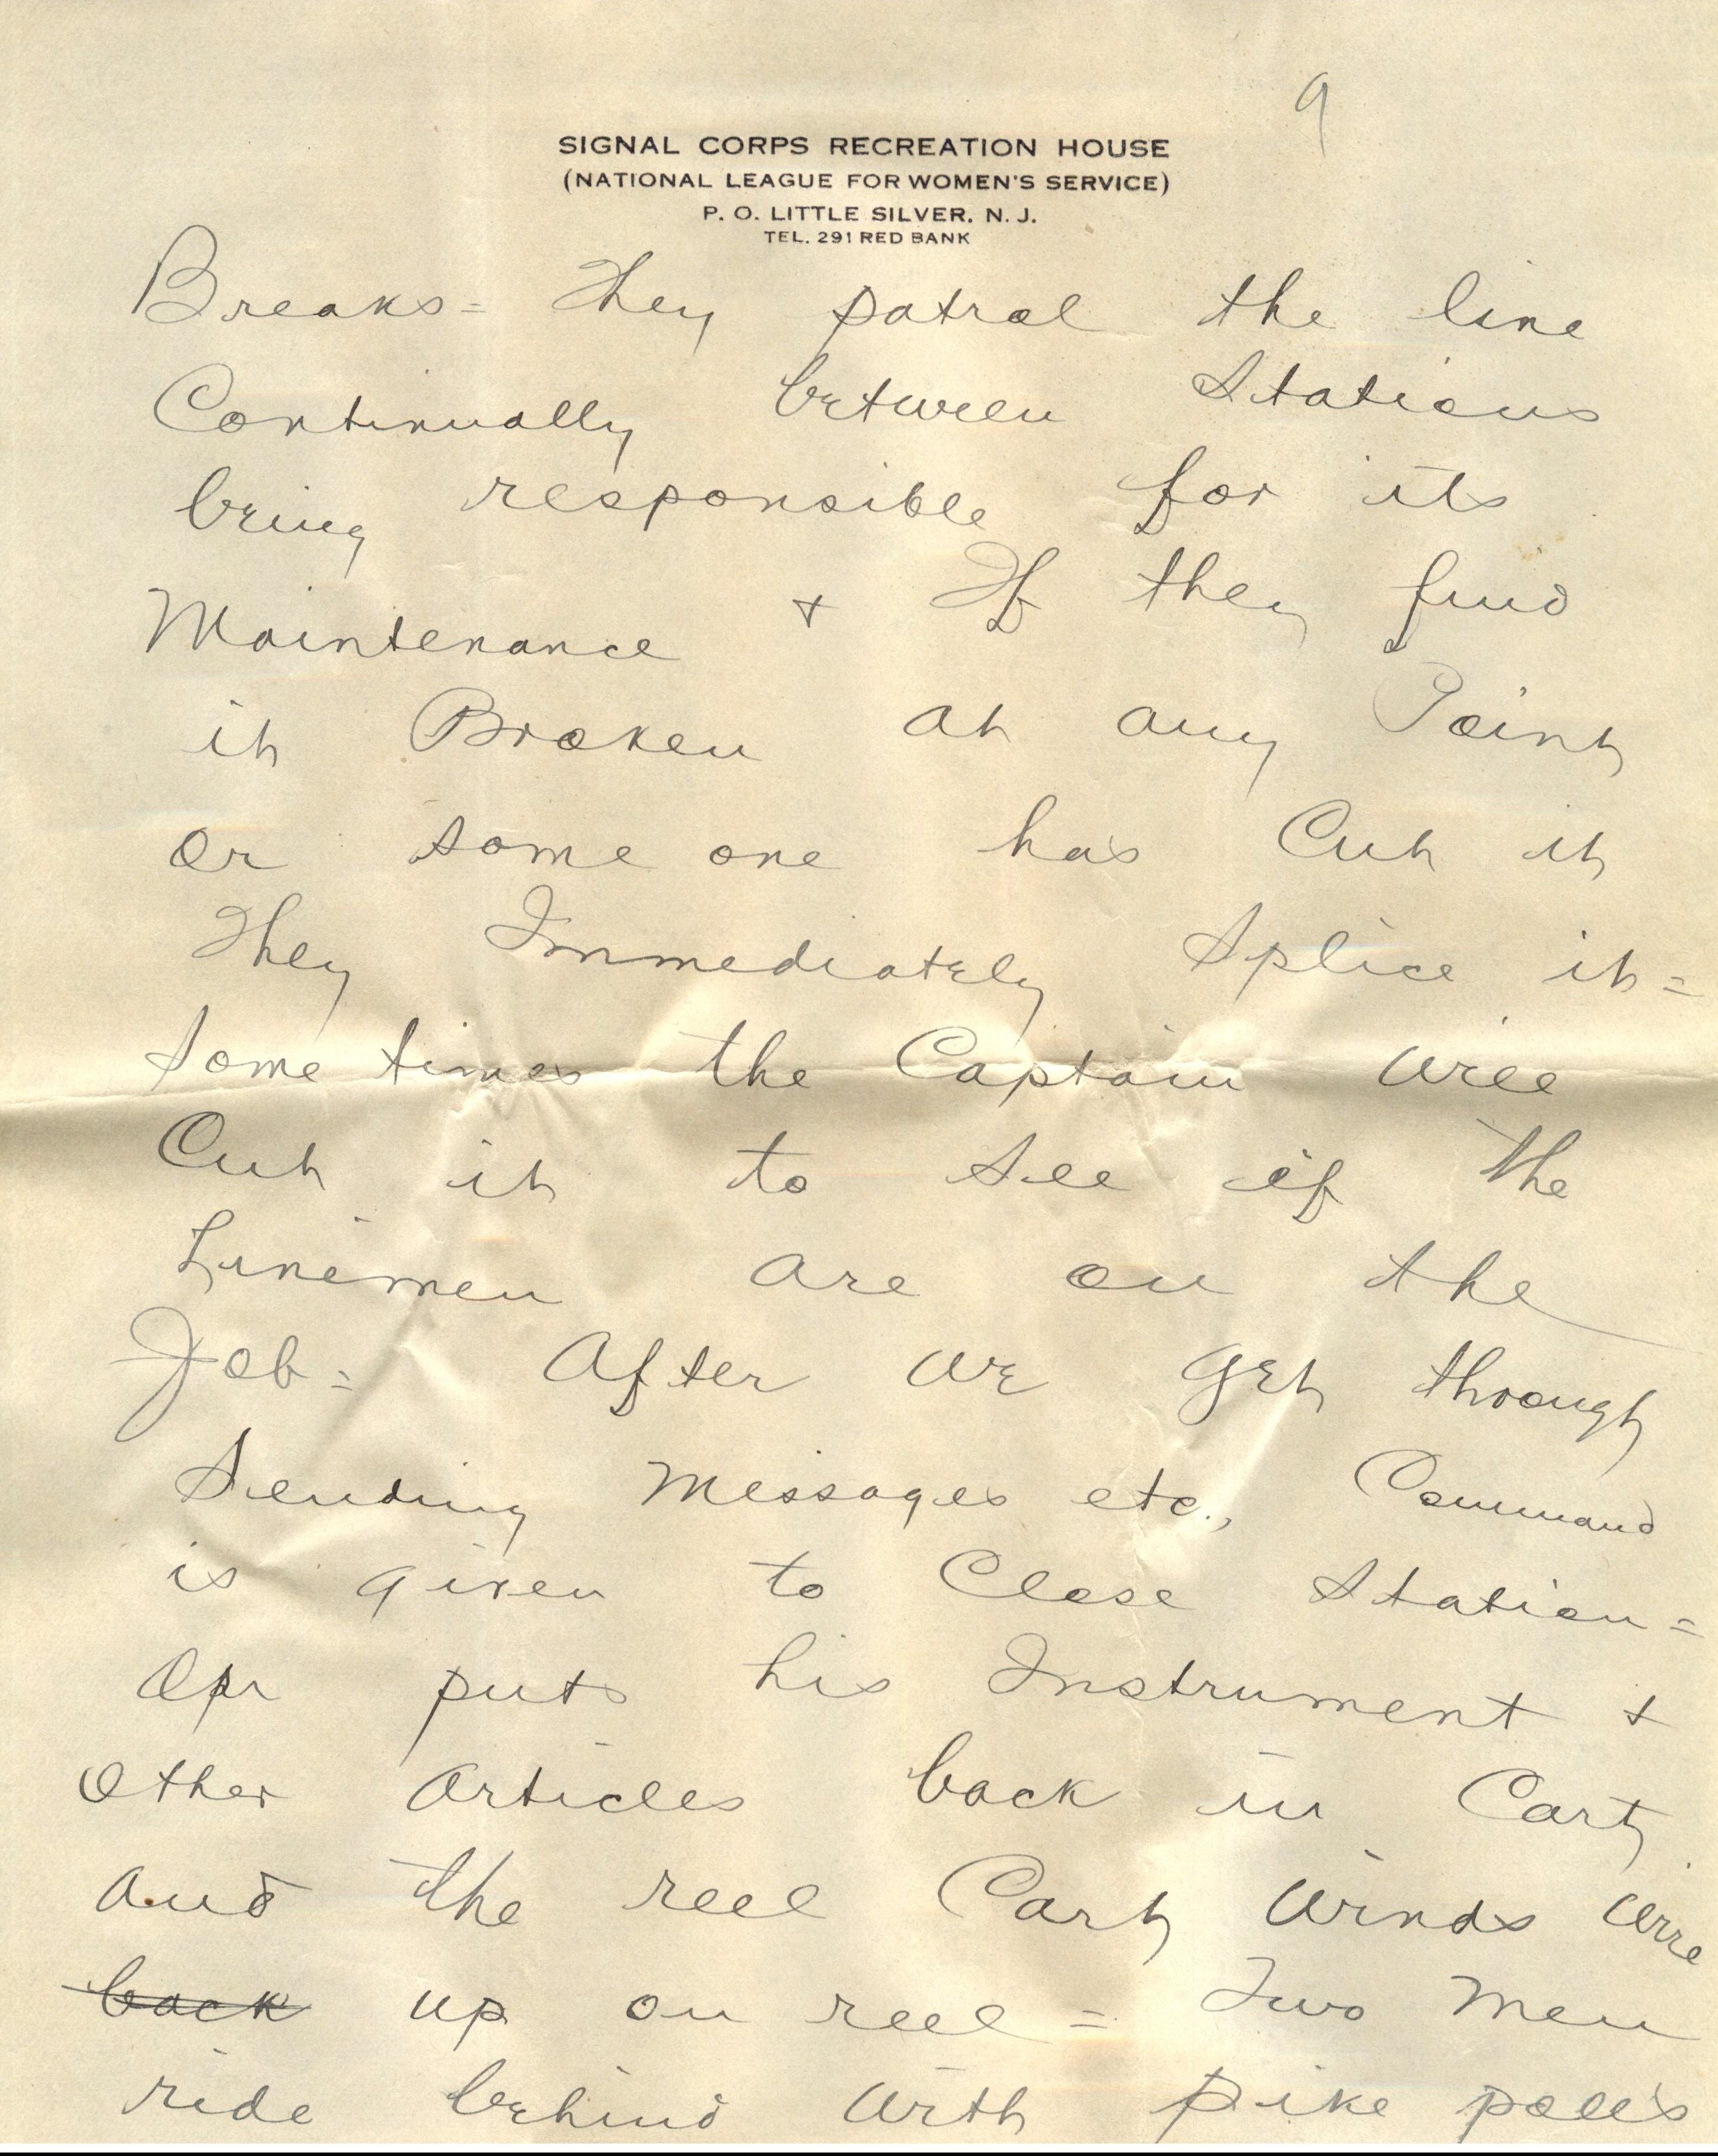 9
SIGNAL CORPS RECREATION HOUSE
(NATIONAL LEAGUE FOR WOMEN'S SERVICE)
P. O. LITTLE SILVER, N. J.
TEL. 291 RED BANK
Breaks = They patrol the line
Continually between Stations
being responsible for its
Maintenance + If they find
it Broken at any Point
or some one has Cut it
They Immediately Splice it =
Some times the Captain will
Cut it to See if the
Linemen are on the
Job = After we get through
Sending Messages etc., Command
is given to Close Station =
Opr puts his Instrument +
Other Articles back in Cart
And the reel Cart Winds Wire
back up on reel = Two Men
ride behind with pike poles